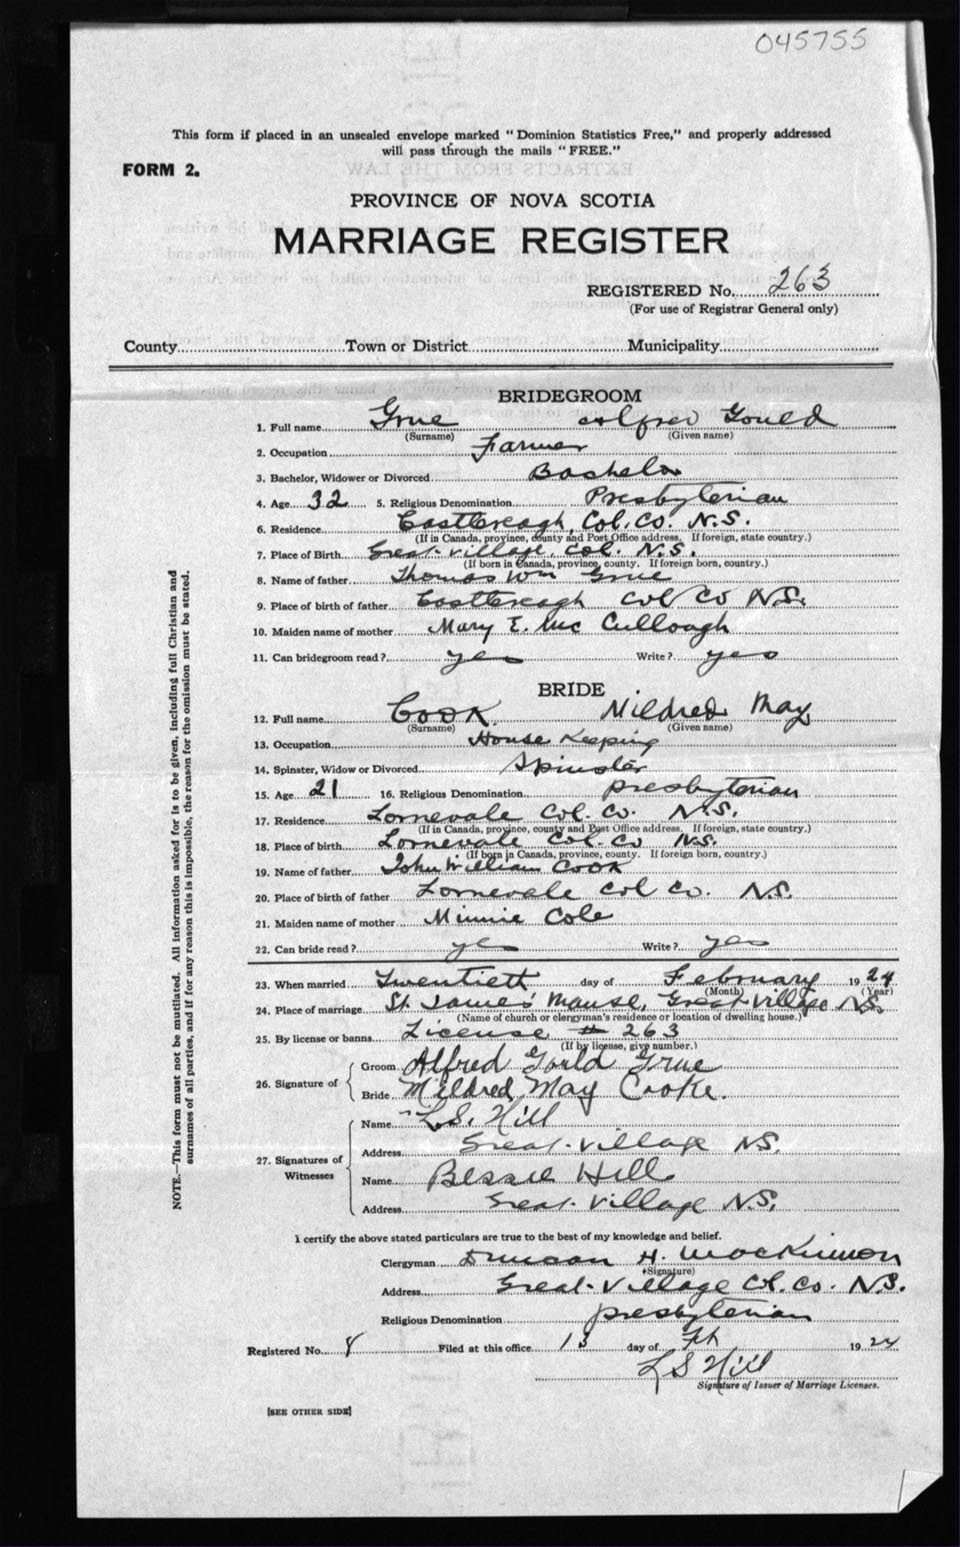 045755
This form if placed in an unsealed envelope marked "Dominion Statistics Free," and properly addressed
will pass through the mails "FREE."
FORM 2.
PROVINCE OF NOVA SCOTIA
MARRIAGE REGISTER
REGISTERED No. 263
(For use of Registrar General only)
County Town or District Municipality
BRIDEGROOM
1. Full name Grue Alfred Gould
(Surname) (Given name)
2. Occupation Farmer
3. Bachelor, Widower or Divorced Bachelor
4. Age 32 5. Religious Denomination Presbyterian
6. Residence Castlereagh Col. Co. N.S.
(If in Canada, province, county and Post Office address. If foreign, state country.)
7. Place of Birth Great Village, Col. N.S.
(If born in Canada, province, county. If foreign born, country.)
8. Name of father Thomas Wm Grue
9. Place of birth of father Castlereagh Col Co N.S.
10. Maiden name of mother Mary E. Mc Cullough
11. Can bridegroom read? yes Write? yes
BRIDE
12. Full name Cook Mildred May
(Surname) (Given name)
13. Occupation House Keeping
14. Spinster, Widow or Divorced Spinster
15. Age 21 16. Religious Denomination presbyterian
17. Residence Lornevale Col. Co. N.S.
(If in Canada, province, county and Post Office address. If foreign, state country.)
18. Place of birth Lornevale Col. Co N.S.
(If born in Canada, province, county. If foreign born, country.)
19. Name of father John William Cook
20. Place of birth of father Lornevale Col Co. N.S.
21. Maiden name of mother Minnie Cole
22. Can bride read? yes Write? yes
23. When married Twentieth day of February 1924
(Month) (Year)
24. Place of marriage St. James' Manse, Great Village N.S.
(Name of church or clergyman's residence or location of dwelling house.)
25. By license or banns License # 263
(If by license, give number.)
26. Signature of
Groom Alfred Gould Grue
Bride Mildred May Cooke.
27. Signatures of Witnesses
Name L.S. Hill
Address Great Village N.S.
Name Bessie Hill
Address Great Village N.S.
I certify the above stated particulars are true to the best of my knowledge and belief.
Clergyman Duncan H. MacKinnon
(Signature)
Address Great Village Col. Co. N.S.
Religious Denomination presbyterian
Registered No. 8 Filed at this office 13 day of Feb 1924
L S Hill
Signature of Issuer of Marriage Licenses.
[SEE OTHER SIDE]
NOTE.—This form must not be mutilated. All information asked for is to be given, including full Christian and
surnames of all parties, and if for any reason this is impossible, the reason for the omission must be stated.